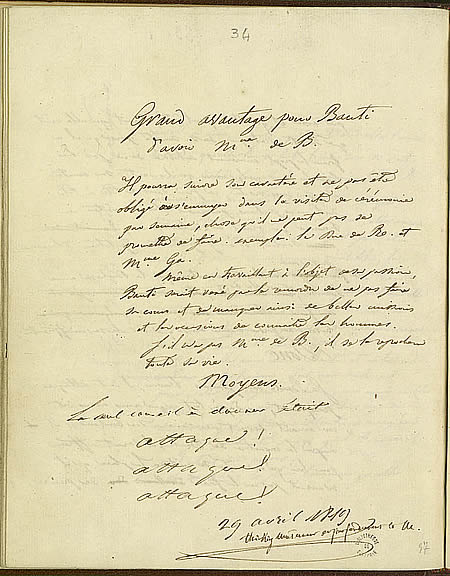 34
Grand avantage pour Banti
d'avoir Mme de B.
Il pourra suivre son caractère et ne pas être
obligé à s'ennuyer dans la visite de cérémonie
par semaine, chose qu'il ne peut pas se
promettre de faire. exemple: la Dse de et
Mme
Même en travaillant à l'objet de sa passion,
Banti serait par le remords de ne pas faire
sa cour et de manquer ainsi de belles
et les occasions de connaître les hommes.
S'il n'a pas Mme de B., il se le reprochera
toute sa vie.
Moyens.
Le seul conseil à donner était
attaque!
attaque!
attaque!
29 avril 1819
97